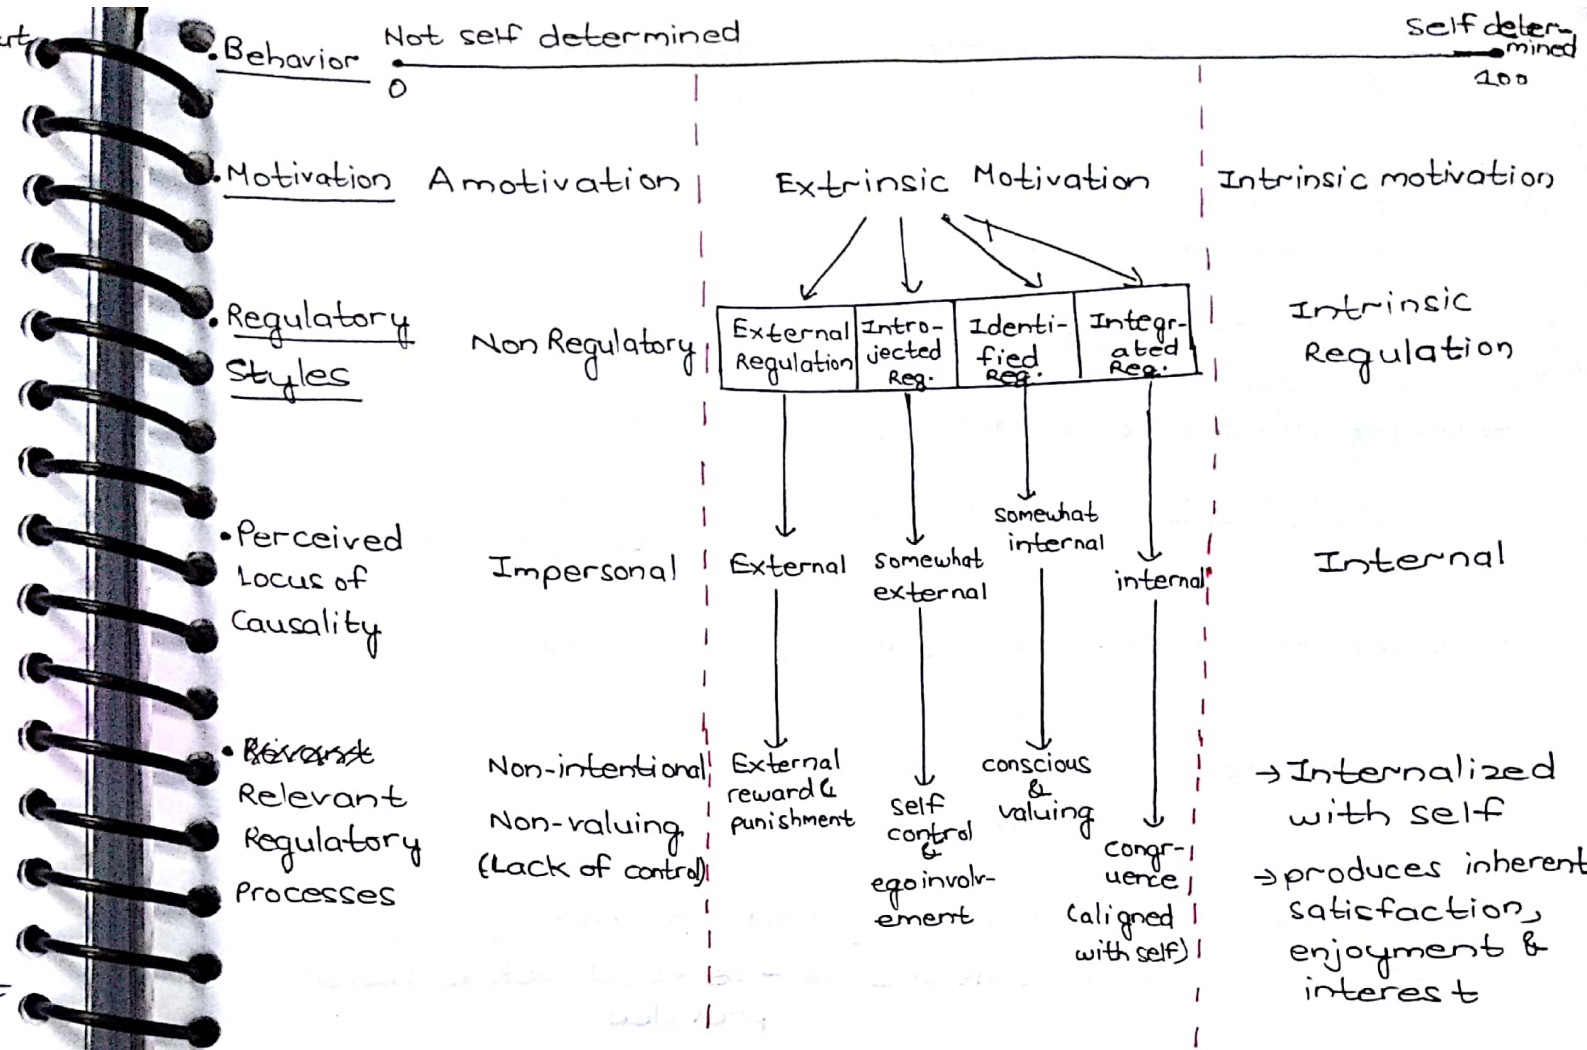 Not self determined
Self deter-
mined
Behavior
0
100
Motivation
Amotivation
Extrinsic Motivation
Intrinsic motivation
Regulatory
Styles
Non Regulatory
External
Regulation
Intro-
jected
Reg.
Identi-
fied
Reg.
Integr-
ated
Reg.
Intrinsic
Regulation
Perceived
Locus of
Causality
Impersonal
External
Somewhat
external
somewhat
internal
internal
Internal
Relevant
Regulatory
Processes
Non-intentional
Non-valuing
(Lack of control)
External
reward &
punishment
self
control
&
ego involv-
ement
conscious
&
valuing
congr-
uence
(aligned
with self)
→ Internalized
with self
→ produces inherent
satisfaction,
enjoyment &
interest